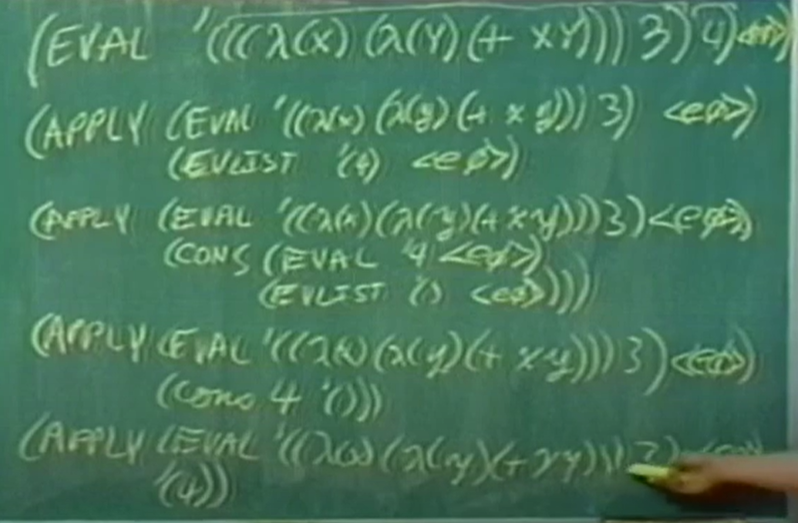 (EVAL '(((λ(x) (λ(Y) (+ XY))) 3) 4) <eø>)
(APPLY (EVAL '((λ(x) (λ(y) (+ x y))) 3) <eø>)
(EVLIST '(4) <eø>)
(APPLY (EVAL '((λ(x)(λ(y)(+xy))) 3) <eø>)
(CONS (EVAL '4 <eø>)
(EVLIST '() <eø>))))
(APPLY (EVAL '((λ(x)(λ(y)(+ xy))) 3) <eø>)
(cons 4 '()))
(APPLY (EVAL '((λ(x)(λ(y)(+xy))) 3)
'(4))